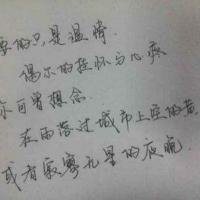 要的只是温情.
偶尔的挂怀与心疼
你可曾想念.
在雨落过城市上空的黄
或者寂寥无星的夜晚.